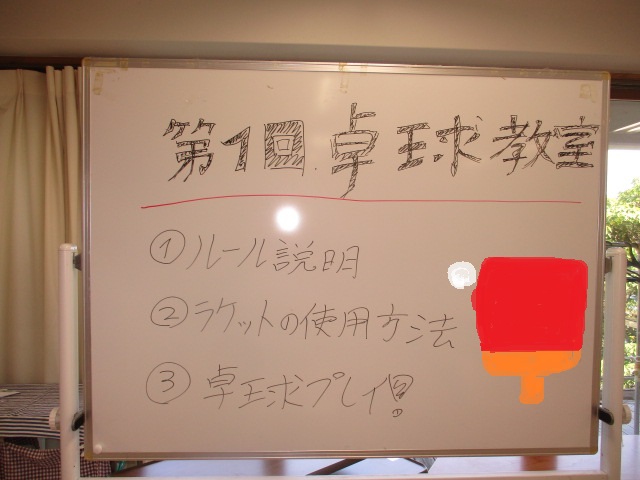 第1回卓球教室
①ルール説明
②ラケットの使用方法
③卓球プレイ!